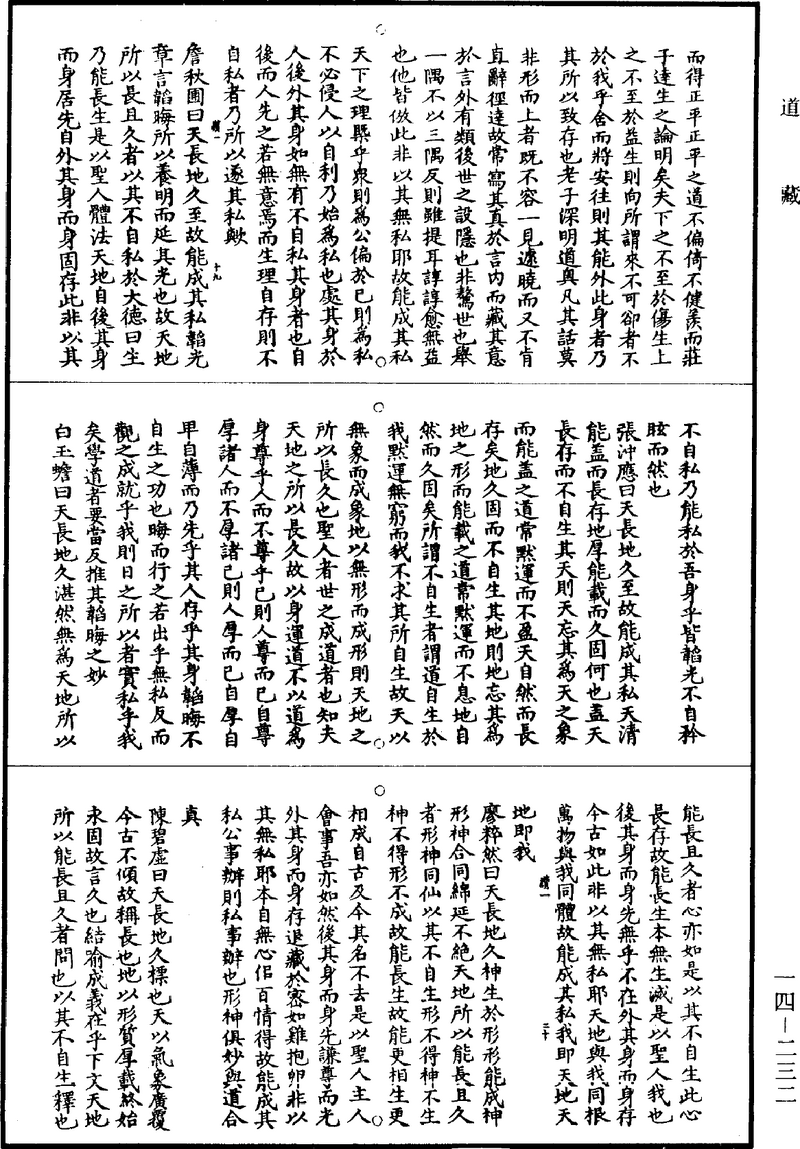 道藏
而得正平正平之道不偏倚不健羨而莊
子達生之論明矣夫下之不至於傷生上
之不至於益生則向所謂來不可卻者不
於我乎舍而將安往則其能外此身者乃
其所以致存也老子深明道奧凡其話莫
非形而上者既不容一見遽曉而又不肯
直辭徑達故常寫其真於言內而藏其意
於言外有類後世之設隱也非驚世也舉
一隅不以三隅反則雖提耳諄諄愈無益
也他皆倣此非以其無私耶故能成其私
天下之理槩乎衆則為公偏於己則為私
不必侵人以自利乃始為私也處其身於
人後外其身如無有不自私其身者也自
後而人先之若無意焉而生理自存則不
自私者乃所以遂其私歟
讚一
十九
詹秋圃曰天長地久至故能成其私韜光
章言韜晦所以養明而延其光也故天地
所以長且久者以其不自私於大德曰生
乃能長生是以聖人體法天地自後其身
而身居先自外其身而身固存此非以其
不自私乃能私於吾身乎皆韜光不自矜
眩而然也
張沖應曰天長地久至故能成其私天清
能蓋而長存地厚能載而久固何也蓋天
長存而不自生其天則天忘其為天之象
而能蓋之道常默運而不盈天自然而長
存矣地久固而不自生其地則地忘其為
地之形而能載之道常默運而不息地自
然而久固矣所謂不自生者謂道自生於
我默運無窮而我不求其所自生故天以
無象而成象地以無形而成形則天地之
所以長久也聖人者世之成道者也知夫
天地之所以長久故以身運道不以道為
身尊乎人而不尊乎己則人尊而己自尊
厚諸人而不厚諸己則人厚而己自厚自
卑自薄而乃先乎其人存乎其身韜晦不
自生之功也晦而行之若出乎無私反而
觀之成就乎我則日之所以者實私乎我
矣學道者要當反推其韜晦之妙
白玉蟾曰天長地久湛然無為天地所以
能長且久者心亦如是以其不自生此心
長存故能長生本無生滅是以聖人我也
後其身而身先無乎不在外其身而身存
今古如此非以其無私耶天地與我同根
萬物與我同體故能成其私我即天地天
地即我
讚一
二十
廖粹然曰天長地久神生於形形能成神
形神合同綿延不絕天地所以能長且久
者形神同仙以其不自生形不得神不生
神不得形不成故能長生故能更相生更
相成自古及今其名不去是以聖人主人
會事吾亦如然後其身而身先謙尊而光
外其身而身存退藏於密如雞抱卵非以
其無私耶本自無心侣百情得故能成其
私公事辦則私事辦也形神俱妙與道合
真
陳碧虛曰天長地久標也天以氣象廣覆
今古不傾故稱長也地以形質厚載終始
永固故言久也結喻成義在乎下文天地
所以能長且久者問也以其不自生釋也
一四－二三二